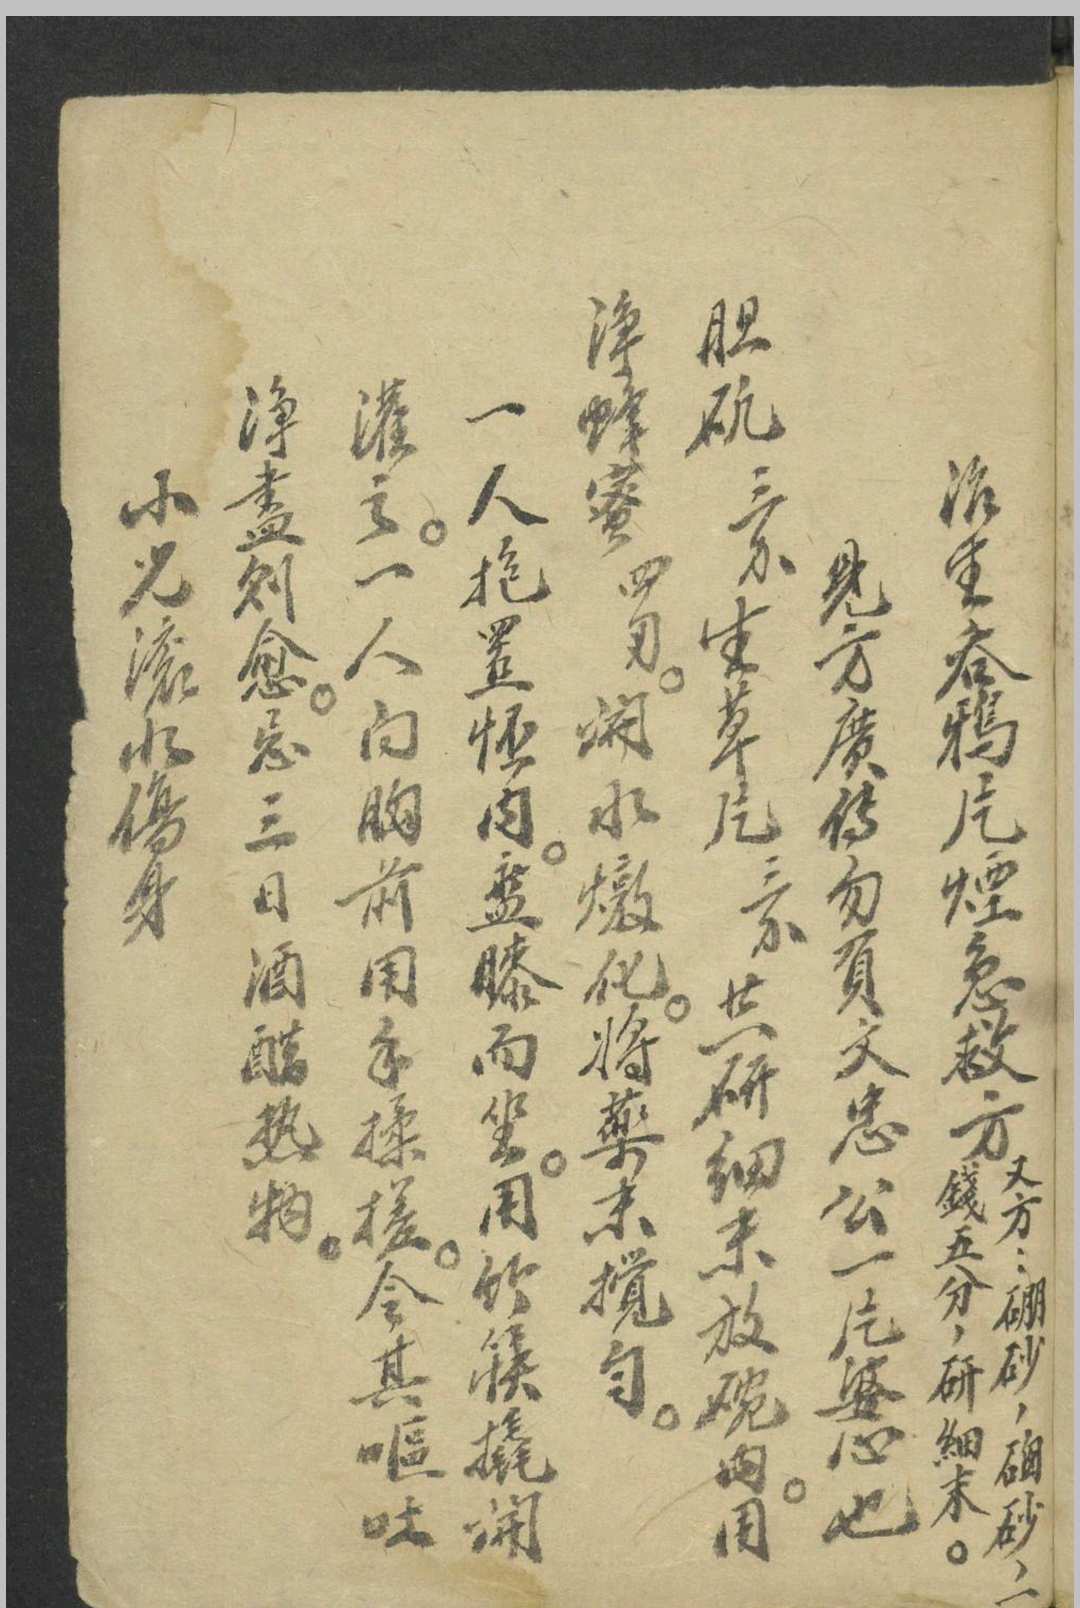 治生吞鴉片煙急救方
又方：硼砂，硇砂，一
錢五分，研細末。
見方廣传勿負文忠公一片婆心也
胆矾三分生草片三分共研細末放碗内。用
净蜂蜜四另。開水燉化。將藥末攪勻。
一人抱置怀内。盘膝而坐。用竹筷撬開
灌之。一人向胸前用手揉搓。令其嘔吐
净盡则愈。忌三日酒醋热物。
小兒滾水傷身